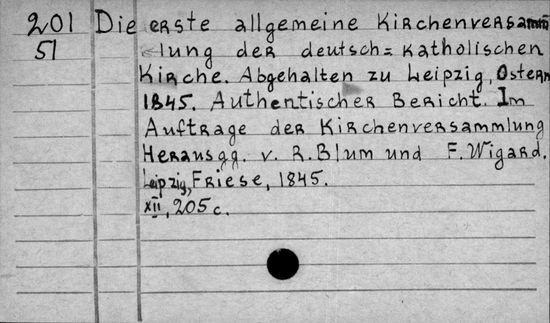 201 Die erste allgemeine Kirchenversamm
51 lung der deutsch=katholischen
Kirche. Abgehalten zu Leipzig, Ostern
1845. Authentischer Bericht. Im
Auftrage der Kirchenversammlung
Herausgg. v. R. Blum und F. Wigard.
Leipzig, Friese, 1845.
XII, 205 c.